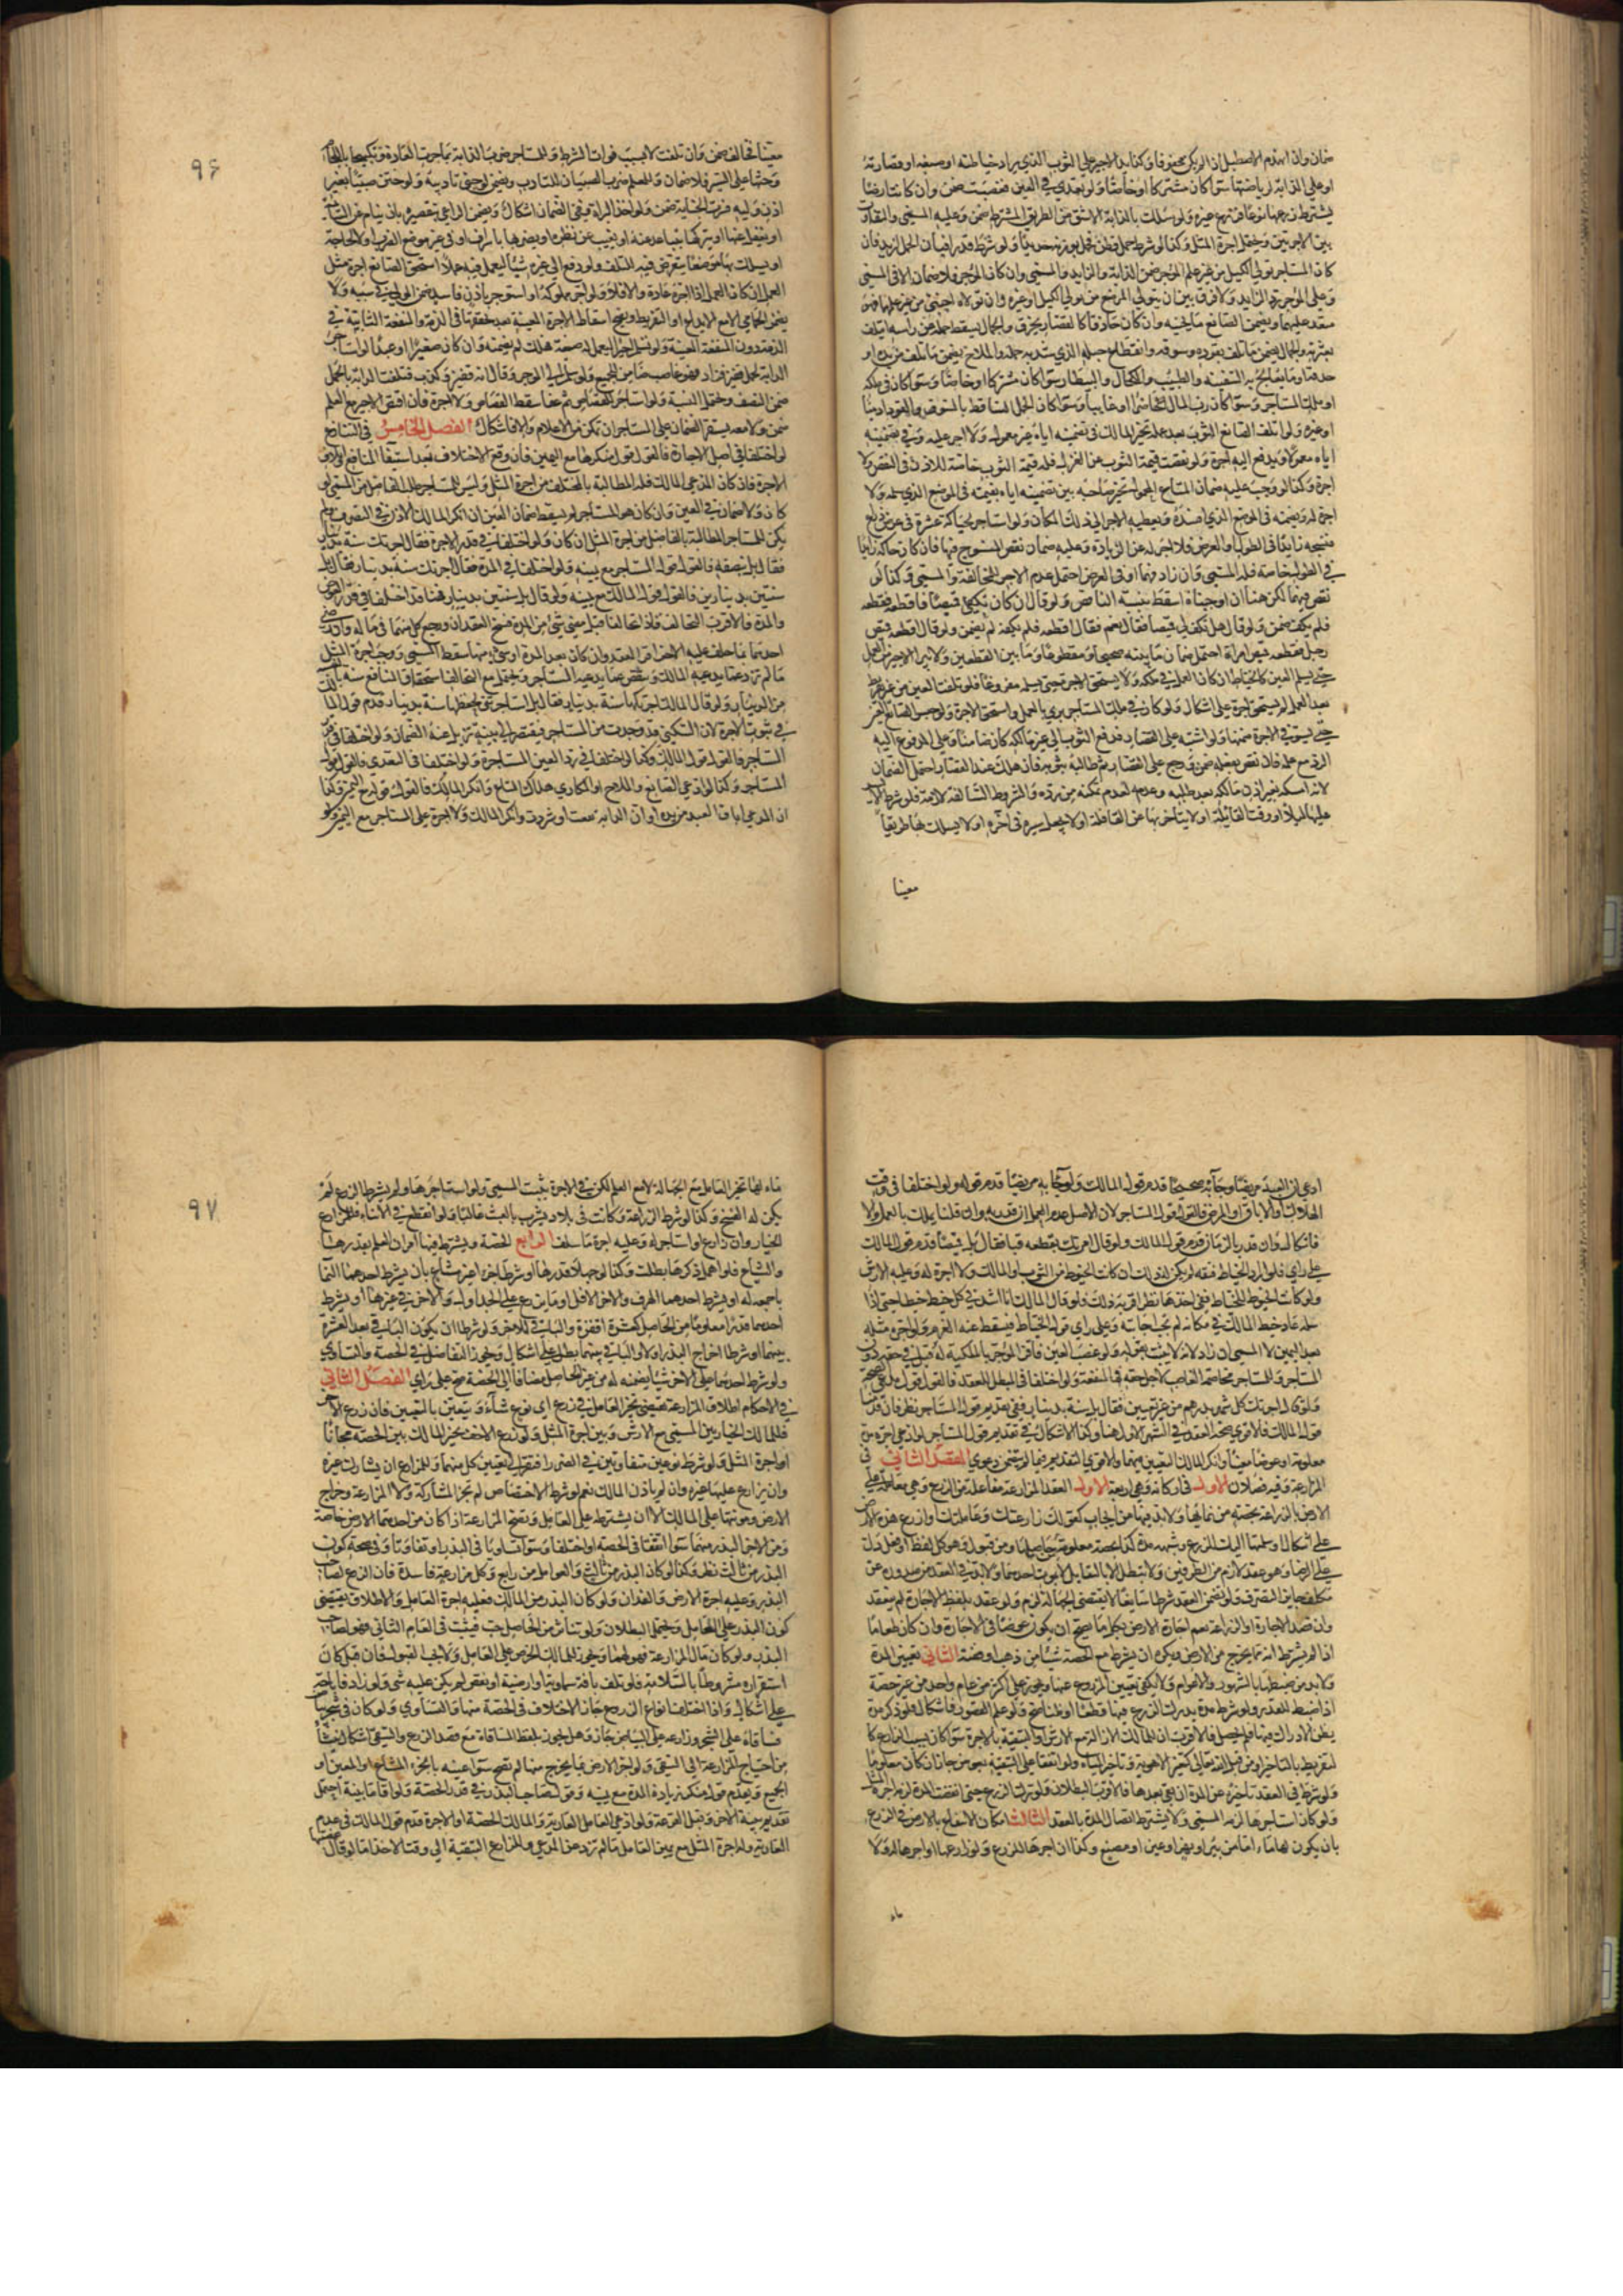 ضمان وان انهدم الاصطبل ان لم يكن مخوفا وكذا يد الاجير على الثوب الذي يراد خياطته او صبغه او قصارته
او على الدابة لرياضتها سوآ كان مشتركا او خاصا ولو تعدى في العين فنقصت ضمن وان كانت ارضا
يشترط زرعها نوعا فزرع غيره ولو سلك بالدابة الاشق من الطريق المشترط ضمن وعليه المسمى والتفاوت
بين الاجرتين ويحتمل اجرة المثل وكذا لو شرط حمل قطن فحمل بوزنه حديدا ولو شرط قدرا فبان الحمل ازيد فان
كان المستاجر تولى الكيل من غير علم الموجر ضمن الدابة والزايد والمسمى وان كان الموجر فلا ضمان الا في المسمى
وعلى الموجر رد الزايد ولا فرق بين ان يتولى الوضع من تولى الكيل او غيره وان تولاه اجنبي من غير علمهما فهو
متعد عليهما ويضمن الصانع ما يجنيه وان كان حاذقا كالقصار يخرق والحمال يسقط حمله عن راسه او يتلف
بعثرته والجمال يضمن ما تلف بقوده وسوقه وانقطاع حبله الذي شد به حمله والملاح يضمن ما تلف من يده او
حذفه او ما يعالج به السفينة والطبيب والكحال والبيطار سوآ كان مشتركا او خاصا وسوآ كان في ملكه
او ملك المستاجر وسوآ كان رب المال حاضرا او غايبا وسوآ كان الحمل الساقط بالسوق والقود ادميا
او غيره ولو اتلف الصانع الثوب بعد عمله تخير المالك في تضمينه اياه غير معمول ولا اجر عليه وفي تضمينه
اياه معمولا ويدفع اليه اجرة ولو نقصت قيمة الثوب عن الغزل فله قيمة الثوب خاصة للاذن في النقص ولا
اجرة وكذا لو وجب عليه ضمان المتاع المحمول تخير صاحبه بين تضمينه اياه بقيمته في الموضع الذي سلمه ولا
اجرة له وبقيمته في الموضع الذي افسده ويعطيه الاجر الى ذلك المكان ولو استاجر لحياكة عشرة في عرض ذراع
فنسجه زايدا في الطول او العرض فلا اجر له عن الزيادة وعليه ضمان نقص المنسوج فيها فان كان حاكه زايدا
في الطول خاصة فله المسمى وان زاد فيهما او في العرض احتمل عدم الاجر للمخالفة والمسمى وكذا لو
نقص فيهما لكن هنا ان اوجبناه اسقط بنسبة الناقص ولو قال ان كان يكفي قميصا فاقطعه فقطعه
فلم يكف ضمن ولو قال هل يكفي قميصا فقال نعم فقال اقطعه فلم يكفه لم يضمن ولو قال اقطعه قميص
رجل فقطعه قميص امراة احتمل ضمان ما بينه صحيحا ومقطوعا وما بين القطعين ولا يبرا الاجير من العمل
حتى يسلم العين كالخياط ان كان العمل في ملكه ولا يستحق الاجرة حتى يسلمه مفروغا فلو تلفت العين من غير تفريط
بعد العمل لم يستحق اجرة على اشكال ولو كان في ملك المستاجر بري بالعمل واستحق الاجرة ولو حبس الصانع العين
حتى يستوفى الاجرة ضمنها ولو اشتبه على القصار فدفع الثوب الى غير مالكه كان ضامنا وعلى المدفوع اليه
الرد مع علمه فان نقص بفعله ضمن ورجع على القصار ثم طالبه بثوبه فان هلك عند القصار احتمل الضمان
لانه امسكه بغير اذن مالكه بعد طلبه وعدمه لعدم تمكنه من رده والشروط السائغة لازمة فلو شرط ان لا يسير
عليها ليلا او وقت القائلة او لا يتاخر بها عن القافلة او لا يجعل سيره في آخره او لا يسلك بها طريقا
معينا
۹۶
معينا فخالف ضمن وان تلفت لا بسبب فوات الشرط وللمستاجر ضرب الدابة بما جرت العادة وتكبيحها باللجام
وحثها على السير فلا ضمان وللمعلم ضرب الصبيان للتاديب ويضمن لو جنى تاديبه ولو ختن صبيا بغير
اذن وليه فسرت الجناية ضمن ولو اخذ البراة ففي الضمان اشكال ويضمن الراعي بتقصيره بان ينام عن السائمة
او يغفل عنها او يتركها تتباعد عنه او تغيب عن نظره او يضربها باسراف او في غير موضع الضرب او لا لحاجة
او يسلك بها موضعا يتعرض فيه للتلف ولو دفع الى غيره شيئا ليعمل فيه عملا استحق الصانع اجرة مثل
العمل ان كان العمل ذا اجرة عادة والا فلا ولو اجر مملوكه او استوجر باذنه فافسد ضمن المولى في سعيه ولا
يضمن الحمامي الا مع الايداع او التفريط ويصح اسقاط الاجرة المعينة بعد تحققها في الذمة والمنفعة الثابتة في
الذمة دون المنفعة المعينة ولو تسلم اجيرا ليعمل له صنعة فهلك لم يضمنه وان كان صغيرا او عبدا ولو استاجر
الدابة لحمل قفيز فزاد فهو غاصب ضامن للجميع ولو سلم الى الموجر وقال انه قفيز وكذب فتلفت الدابة بالحمل
ضمن النصف ويحتمل النسبة ولو استاجر للقصاص ثم عفا سقط القصاص ولا اجرة فان اقتص الاجير مع العلم
ضمن ولا معه يستقر الضمان على المستاجر ان تمكن من الاعلام والا فاشكال الفصل الخامس في التنازع
لو اختلفا في اصل الاجارة فالقول قول منكرها مع اليمين فان وقع الاختلاف بعد استيفآ المنافع او تلف
الاجرة فان كان المدعي المالك فله المطالبة بالمتخلف من اجرة المثل وليس للمستاجر طلب الفاضل من المسمى لو
كان ولا ضمان في العين وان كان هو المستاجر لم يسقط ضمان العين ان انكر المالك الاذن في التصرف ولم
يكن للمستاجر المطالبة بالفاضل من اجرة المثل ان كان ولو اختلفا في قدر الاجرة فقال اجرتك سنة بدينار
فقال بل بنصفه فالقول قول المستاجر مع يمينه ولو اختلفا في المدة فقال اجرتك سنة بدينار فقال بل
سنتين بدينارين فالقول قول المالك مع يمينه ولو قال بل سنتين بدينار فهنا قد اختلفا في قدر العوض
والمدة فالاقرب التحالف فاذا تحالفا قبل مضي شي من المدة فسخ العقد ان ورجع كل منهما في ماله وان رضي
احدهما بما حلف عليه الاخر اقر العقد وان كان بعد المدة او شي منها سقط المسمى ووجب اجرة المثل
ما لم تزد عما يدعيه المالك وتنقص عما يدعيه المستاجر ويحتمل مع التحالف استحقاق المنافع سنة بالنسبة
من الدينار ولو قال المالك اجرتكها سنة بدينار فقال بل استاجرتني لحفظها سنة بدينار قدم قول المالك
في ثبوت الاجرة لان السكنى قد وجدت من المستاجر فيفتقر الى بينة تزيل عنه الضمان ولو اختلفا في قدر
المستاجر فالقول قول المالك وكذا لو اختلفا في رد العين المستاجرة ولو اختلفا في التعدي فالقول قول
المستاجر وكذا لو ادعى الصانع والملاح او المكاري هلاك المتاع وانكر المالك فالقول قولهم مع اليمين وكذا
ان المدعي اباق العبد من يده او ان الدابة نفقت او شردت وانكر المالك ولا اجرة على المستاجر مع اليمين ولو
ادعى ان العبد مرض وجآ به صحيحا قدم قول المالك ولو جآ به مريضا قدم قوله ولو اختلفا في وقت
الهلاك او الاباق او المرض فالقول قول المستاجر لان الاصل عدم العمل ان قدر به وان قلنا يملك بالعمل والا
فاشكال وان قدر بالزمان قدم قول المالك ولو قال امرتك بقطعه قبا فقال بل قميصا قدم قول المالك
على راي فلو اراد الخياط فتقه لم يكن له ذلك ان كانت الخيوط من الثوب او المالك ولا اجرة له وعليه الارش
ولو كانت الخيوط للخياط ففي اخذها نظر اقربه ذلك فلو قال المالك انا اشد في كل خيط خيطا حتى اذا
سله عاد خيط المالك في مكانه لم تجب اجابته وعلى راي قول الخياط فيسقط عنه الغرم وله اجرة مثله
بعد اليمين لا المسمى ان زاد لانه لا يثبت بقوله ولو غصب العين فاقر الموجر بالملكية له قبل في حقه دون
المستاجر وللمستاجر مخاصمة الغاصب لاجل حقه في المنفعة ولو اختلفا في المبطل للعقد فالقول قول مدعي الصحة
ولو قال اجرتك كل شهر بدرهم من غير تعيين فقال بل سنة بدينار ففي تقديم قول المستاجر نظر فان قدمنا
قول المالك فالاقوى صحة العقد في الشهر الاول هنا وكذا الاشكال في تقديم قول المستاجر لو ادعى اجرة مدة
معلومة او عوضا معينا وانكر المالك التعيين فيهما والاقوى التقديم فيما لم يتضمن دعوى المقصد الثاني في
المزارعة وفيه فصلان الاول في اركانها وهي اربعة الاول العقد المزارعة مفاعلة من الزرع وهي معاملة على
الارض بالزراعة بحصة من نمائها ولا بد فيها من ايجاب كقولك زارعتك وعاملتك وازرع هذه الارض
على اشكال او سلمتها اليك للزرع وشبهه مدة كذا بحصة معلومة من حاصلها ومن قبول وهو كل لفظ او فعل دل
على الرضا وهو عقد لازم من الطرفين ولا تبطل الا بالتقايل لا بموت احدهما ولا بد في العقد من صدوره عن
مكلف جايز التصرف ولو تضمن العقد شرطا سايغا لا يقتضي الجهالة لزم ولو عقد بلفظ الاجارة لم ينعقد
وان قصد الاجارة او الزراعة نعم اجارة الارض بكل ما يصح ان يكون عوضا في الاجارة وان كان طعاما
اذا لم يشترط انه مما يخرج من الارض ويكره ان يشترط مع الحصة شيئا من ذهب او فضة الثاني تعيين المدة
ولا بد من ضبطها بالشهور والاعوام ولا يكفي تعيين المزروع عنها ويجوز على اكثر من عام واحد من غير حصر
اذا ضبط القدر ولو شرط مدة يدرك الزرع فيها قطعا او ظنا صح ولو علم القصور فاشكال فلو ذكر مدة
يظن الادراك فيها فلم يحصل فالاقرب ان للمالك الازالة مع الارش او التبقية بالاجرة سوآ كان بسبب الزارع كا
لتفريط بالتاخير او من قبل الله تعالى كتغير الاهوية وتاخر المياه ولو اتفقا على التبقية بعوض جاز ان كان معلوما
ولو شرط في العقد تاخيره عن المدة ان بقي بعدها فالاقرب البطلان ولو ترك الزرع حتى انقضت المدة لزمه اجرة المثل
ولو كان استاجرها لزمه المسمى ولا يشترط اتصال المدة بالعقد الثالث امكان الانتفاع بالارض في الزرع
بان يكون لها مآء اما من بير او نهر او عين او مصنع وكذا ان اجرها للزرع ولو زارعها او اجرها له ولا
ماء
۹۷
ماء لها تخير العامل مع الجهالة لا مع العلم لكن في الاجرة يثبت المسمى ولو استاجرها ولم يشترط الزرع لم
يكن له الفسخ وكذا لو شرط الزراعة وكانت في بلاد تشرب بالغيث غالبا ولو انقطع في الاثناء فللمزارع
الخيار وان زارع او استاجر له وعليه اجرة ما سلف الرابع الحصة ويشترط فيها امران العلم بقدرها
والشياع فلو اهمل ذكرها بطلت وكذا لو جهلا قدرها او شرطا جزءا غير مشاع بان يشترط احدهما النمآ
باجمعه له او يشترط احدهما الهرف والاخر الافل او ما يزرع على الجداول والاخر في غيرها او يشترط
احدهما قدرا معلوما من الحاصل كعشرة اقفزة والباقي للاخر ولو شرطا ان يكون الباقي بعد العشرة
بينهما او شرطا اخراج البذر اولا والباقي بينهما بطل على اشكال ويجوز التفاضل في الحصة والتساوي
ولو شرط احدهما على الاخر شيئا يضمنه له من غير الحاصل مضافا الى الحصة صح على راي الفصل الثاني
في الاحكام اطلاق المزارعة يقتضي تخير العامل في زرع اي نوع شآء ويتعين بالتعيين فان زرع الاضر
فللمالك الخيار بين المسمى مع الارش وبين اجرة المثل ولو زرع الاخف تخير المالك بين الحصة مجانا
او اجرة المثل ولو شرط نوعين متفاوتين في الضرر افتقر الى تعيين كل منهما وللمزارع ان يشارك غيره
وان يزارع عليها غيره وان لم ياذن المالك نعم لو شرط الاختصاص لم تجز المشاركة ولا المزارعة وخراج
الارض ومونتها على المالك الا ان يشترطه على العامل وتصح المزارعة اذا كان من احدهما الارض خاصة
ومن الاخر البذر منهما سوآ اتفقا في الحصة او اختلفا وسوآ تساويا في البذر او تفاوتا وفي صحة كون
البذر من ثالث نظر وكذا لو كان البذر من ثالث والعوامل من رابع وكل مزارعة فاسدة فان الزرع لصاحب
البذر وعليه اجرة الارض والفدان ولو كان البذر من المالك فعليه اجرة العامل والاطلاق يقتضي
كون البذر على العامل ويحتمل البطلان ولو تناثر من الحاصل حب فنبت في العام الثاني فهو لصاحب
البذر ولو كان من مال المزارعة فهو لهما ويجوز للمالك الخرص على العامل ولا يجب القبول فان قبل كان
استقراره مشروطا بالسلامة فلو تلف بآفة سماوية او ارضية او نقص لم يكن عليه شي ولو زاد فاباحة
على اشكال واذا اختلف انواع الزرع جاز الاختلاف في الحصة منها والتساوي ولو كان في الارض شجر
فساقاه على الشجر وزارعه على البياض جاز وهل يجوز بلفظ المساقاة مع قصد الزرع والسقي اشكال ينشا
من احتياج المزارعة الى السقي ولو اجر الارض بما يخرج منها لم تصح سوآ عينه بالجزء المشاع او المعين او
الجميع ويقدم قول منكر زيادة المدة مع يمينه وقول صاحب البذر في قدر الحصة ولو اقاما بينة احتمل
تقديم بينة الاخر وقيل القرعة ولو ادعى العامل العارية والمالك الحصة او الاجرة قدم قول المالك في عدم
العارية وله اجرة المثل مع يمين العامل ما لم تزد عن المدعي وللزارع التبقية الى وقت الاخذ اما لو قال غصبتنيها